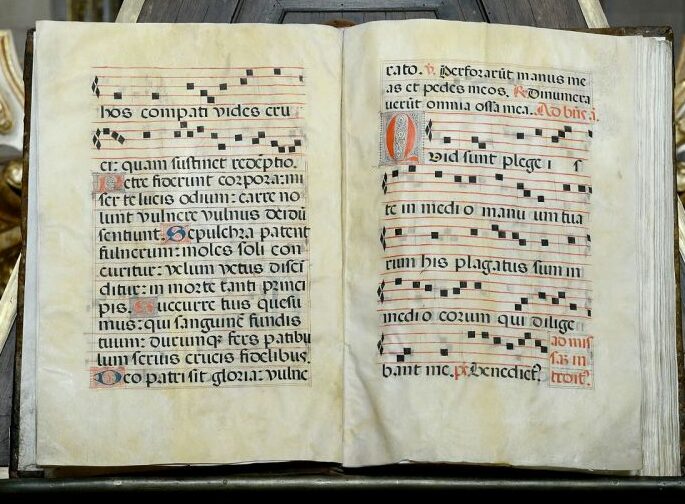 hos compati vides cru
ci: quam sustinet redēptio.
Petre fiderunt corpora: mi
ser te lucis odium: carre no
lunt vulnere vulnus deidū
sentiunt. Sepulchra patent
fulnerum: moles soli con
curitur: velum vetus disci
ditur: in morte tanti princi
pis. Succurre tuis quesu
mus: qui sanguinē fundis
tuum: durumq̄ fers patibu
lum seruis crucis fidelibus.
Deo patri sit gloria: vulne
rato. ℣. Perforarūt manus me
as et pedes meos. ℟ Dinumera
uerūt omnia ossa mea. Ad bn̄s ā.
Quid sunt plege i s
te in medio manu um tua
rum his plagatus sum in
medio eorum qui dilige
bant me. ps̄. Benedict⁹.
ad mis
sā: in
troit⁹.